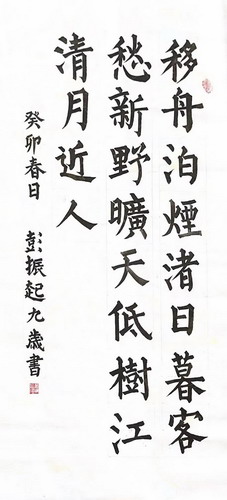 移舟泊煙渚日暮客
愁新野曠天低樹江
清月近人
癸卯春日 彭振起九歲書